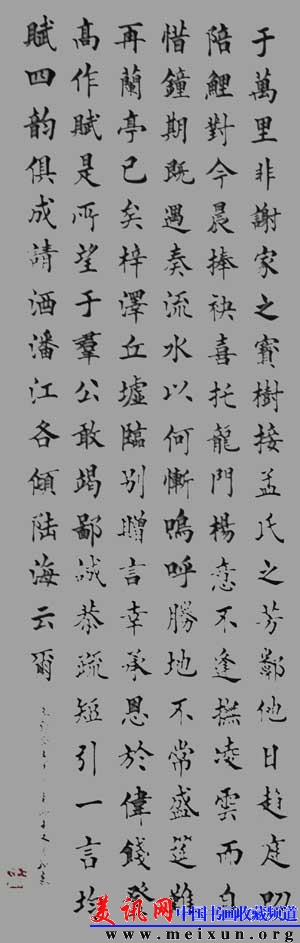 于萬里非謝家之寶樹接孟氏之芳鄰他日趍庭叨
陪鯉對今晨捧袂喜托龍門楊意不逢撫凌雲而自
惜鐘期既遇奏流水以何慚嗚呼勝地不常盛筵難
再蘭亭已矣梓澤丘墟臨別贈言幸承恩於偉餞登
高作賦是所望于羣公敢竭鄙誠恭疏短引一言均
賦四韵俱成請洒潘江各傾陆海云爾
美讯网 中国书画收藏频道
www.meixun.org